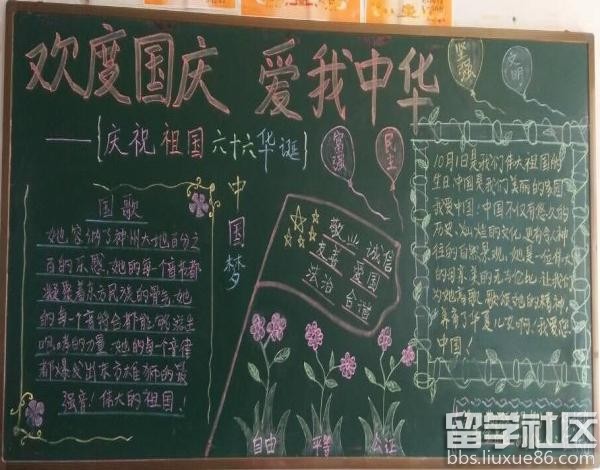 欢度国庆 爱我中华
——{庆祝祖国六十六华诞}
坚强
文明
富强
民主
中国梦
国歌
她容纳了神州大地百分之
百的乐感,她的每个音来都
凝聚着东方民族的骨气,她
的每个音符合都能够滋生
的力量,她的每个音律
都爆发出东方雄狮的最
强音!伟大的祖国!
敬业 诚信
友善 爱国
法治
自由
平等
公正
10月1日是我们伟大祖国的
生日,中国是我们美丽的家园
我爱中国,中国不仅有悠久的
历史、灿烂的文化,更有令人神
往的自然景观。她是一位伟大
的母亲,美的无与伦比,让我们
为她高歌,歌颂她的精神,
养育了华夏儿女啊,我爱您
中国!
留学社区
bbs.liuxue86.com